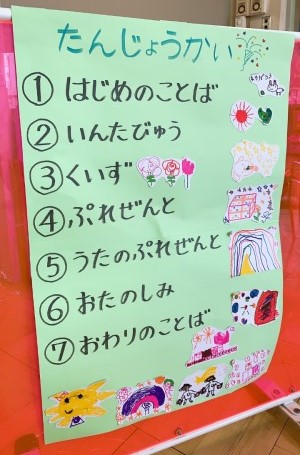 たんじょうかい
①はじめのことば
②いんたびゅう
③くいず
④ぷれぜんと
⑤うたのぷれぜんと
⑥おたのしみ
⑦おわりのことば